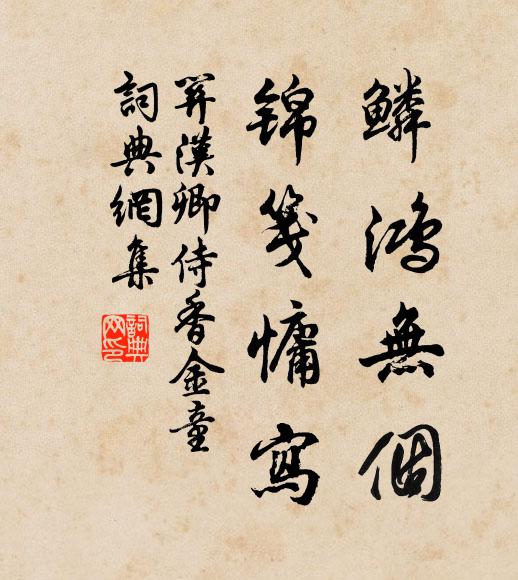 鱗鴻無個
錦箋慵寫
關漢卿侍香金童
詞典網集
詞典
网印